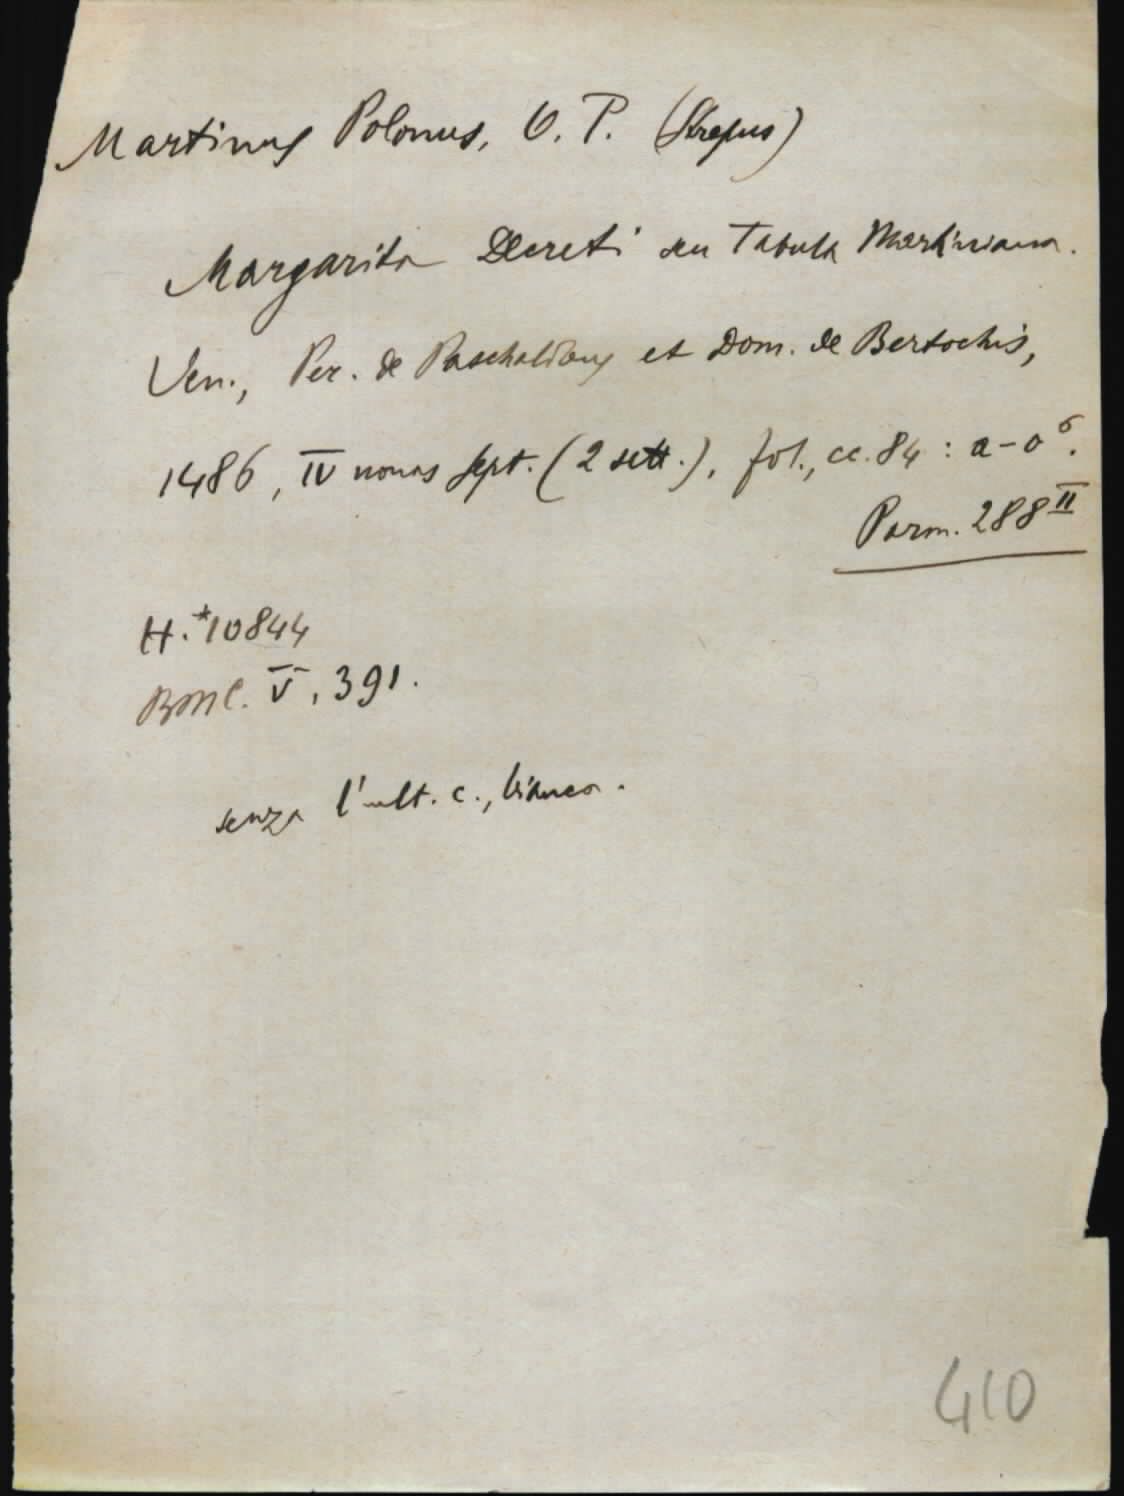 Martinus Polonus, O. P. (Strepus)
Margarita Decreti seu Tabula Martiniana.
Ven., Per. de Paschalibus et Dom. de Bertochis,
1486, IV nonas sept. (2 sett.), fol., cc. 84 : a-o⁶.
Parm. 288ᴵᴵ
H. *10844
BMC. V, 391.
senza l'ult. c., bianca.
410